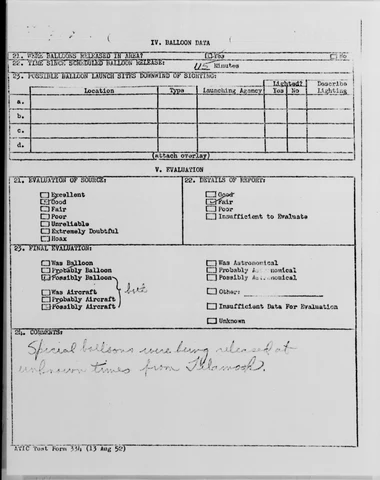 IV. BALLOON DATA
21. WERE BALLOONS RELEASED IN AREA? Yes No
22. TIME SINCE SCHEDULED BALLOON RELEASE: 45 Minutes
23. POSSIBLE BALLOON LAUNCH SITES DOWNWIND OF SIGHTING:
Location Type Launching Agency Lighted? Yes No Describe Lighting
a.
b.
c.
d.
(attach overlay)
V. EVALUATION
21. EVALUATION OF SOURCE: 22. DETAILS OF REPORT:
Excellent Good
Good Fair
Fair Poor
Poor Insufficient to Evaluate
Unreliable
Extremely Doubtful
Hoax
23. FINAL EVALUATION:
Was Balloon Was Astronomical
Probably Balloon Probably Astronomical
Possibly Balloon Possibly Astronomical
but
Was Aircraft Other:
Probably Aircraft
Possibly Aircraft Insufficient Data For Evaluation
Unknown
24. COMMENTS:
Special balloons were being released at
unknown times from Tilamook.
ATIC Test Form 334 (13 Aug 52)